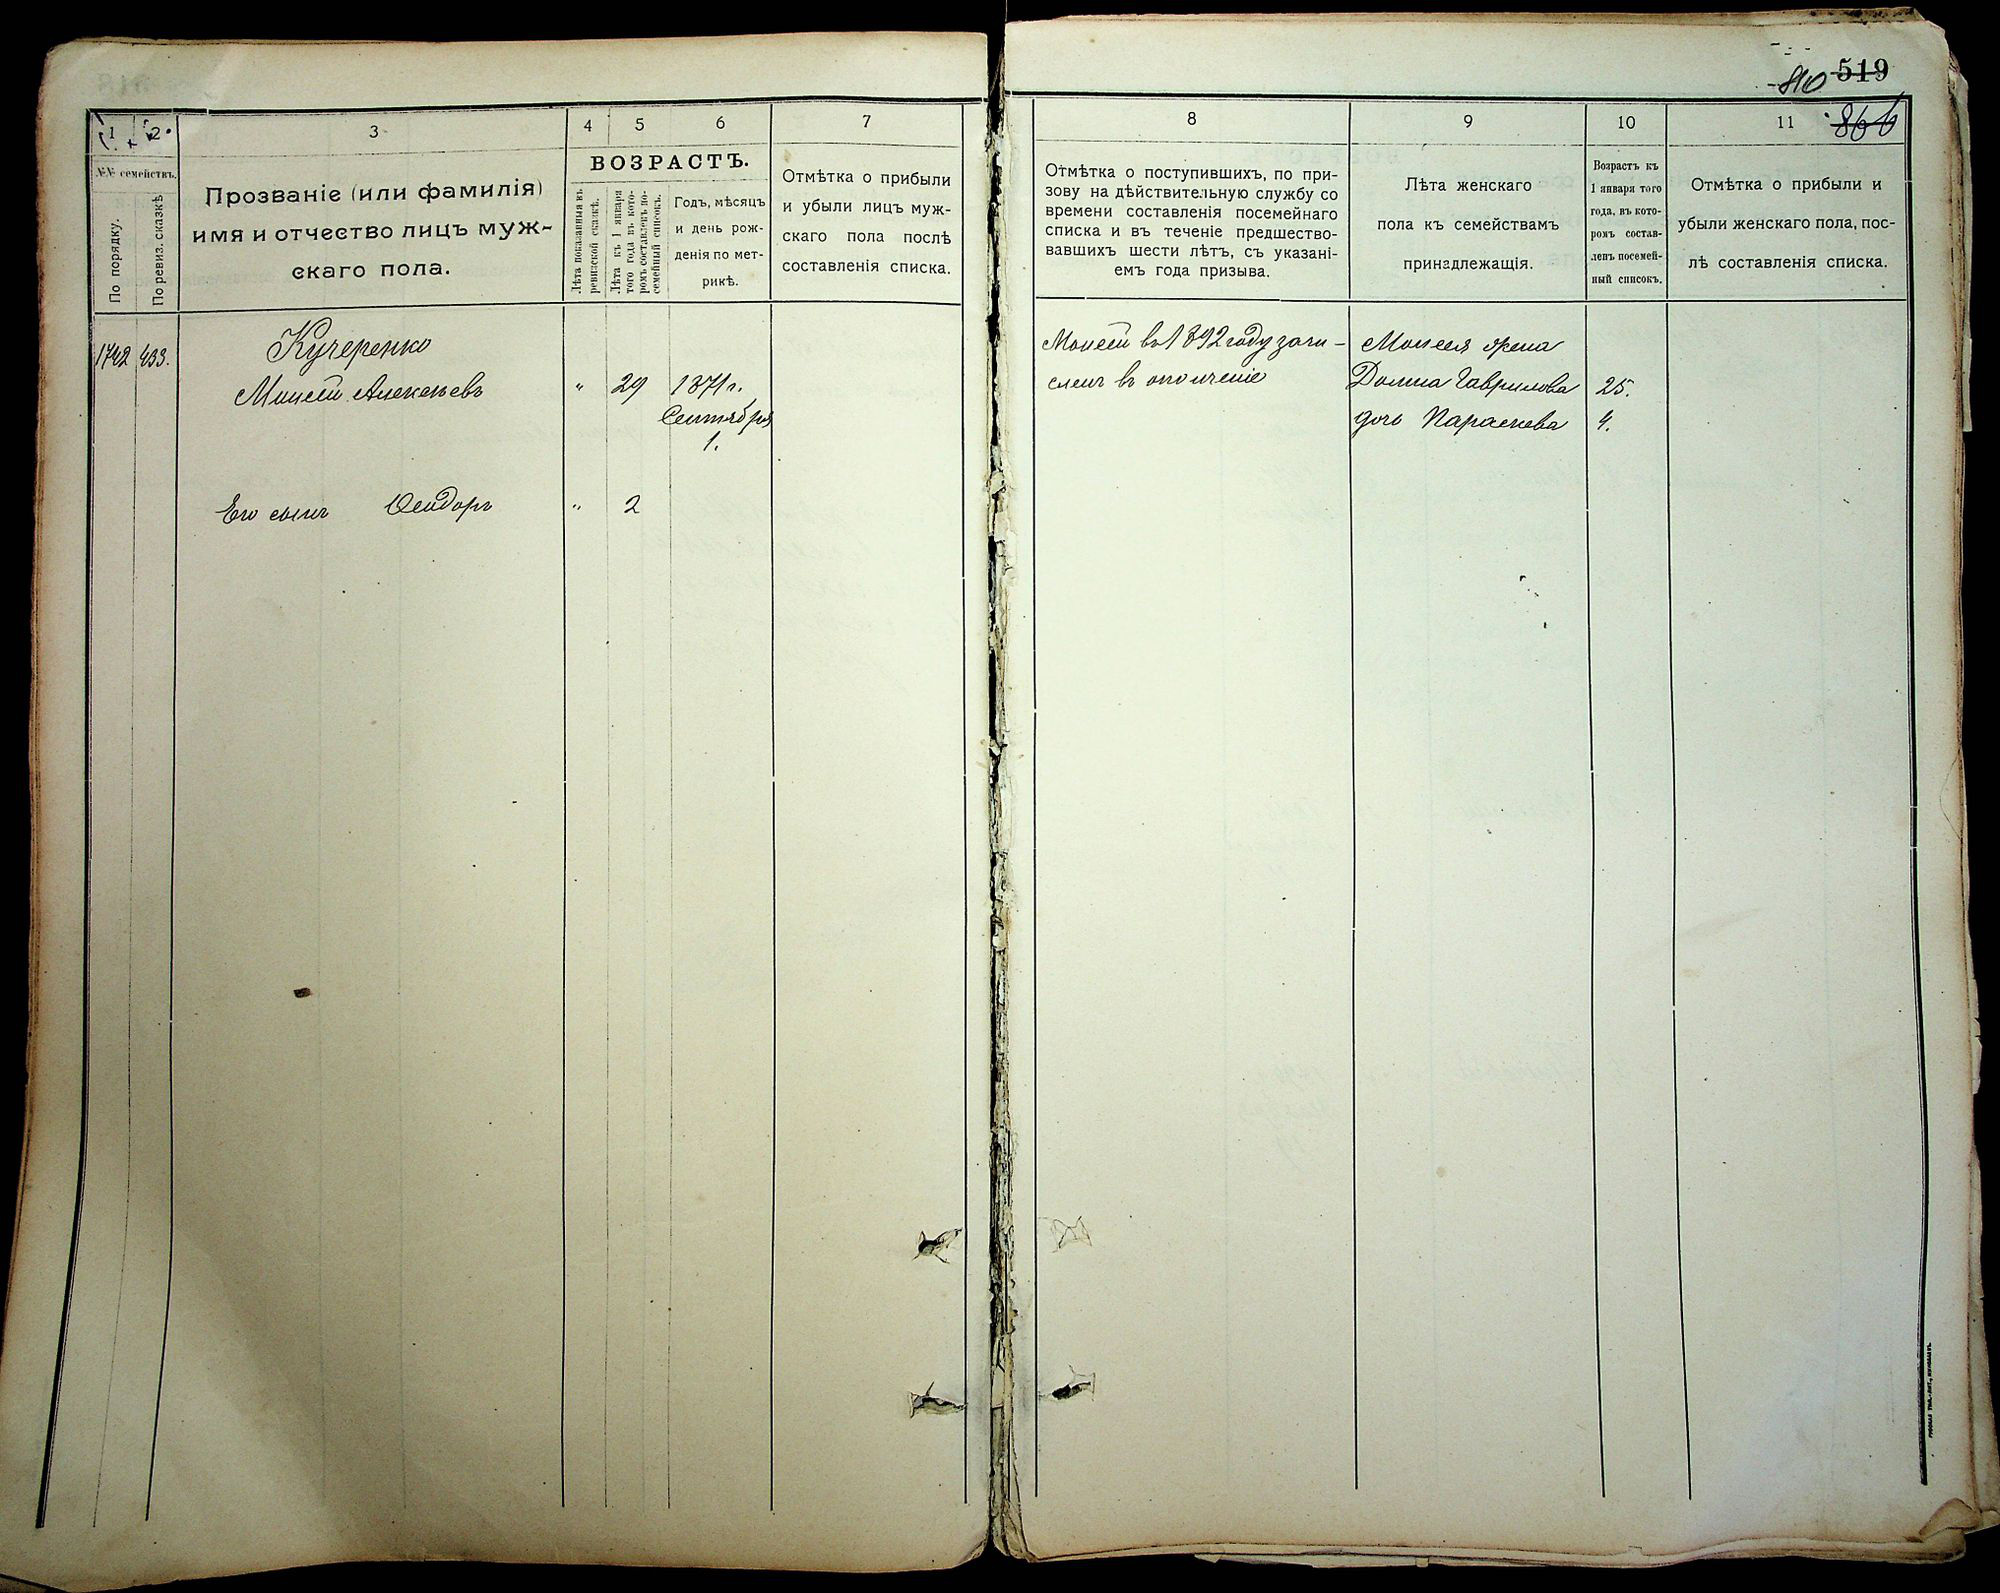 810 519
866
1
2
3
4
5
6
7
№№ семействъ.
По порядку.
По ревиз. сказкѣ
Прозваніе (или фамилія)
имя и отчество лицъ муж-
скаго пола.
ВОЗРАСТЪ.
Лѣта показанныя въ
ревизской сказкѣ.
Лѣта къ 1 января
того года въ кото-
ромъ составленъ по-
семейный списокъ.
Годъ, мѣсяцъ
и день рож-
денія по мет-
рикѣ.
Отмѣтка о прибыли
и убыли лицъ муж-
скаго пола послѣ
составленія списка.
1742 433.
Кучеренко
Моисей Алексѣевъ " 29 1871 г.
Сентября
1.
Его сынъ Ѳеодоръ " 2
8
9
10
11
Отмѣтка о поступившихъ, по при-
зову на дѣйствительную службу со
времени составленія посемейнаго
списка и въ теченіе предшество-
вавшихъ шести лѣтъ, съ указані-
емъ года призыва.
Лѣта женскаго
пола къ семействамъ
принадлежащія.
Возрастъ къ
1 января того
года, въ кото-
ромъ состав-
ленъ посемей-
ный списокъ.
Отмѣтка о прибыли и
убыли женскаго пола, пос-
лѣ составленія списка.
Моисей въ 1892 году зачи-
сленъ въ ополченіе
Моисея жена
Домна Гаврилова 25.
дочь Параскева 4.